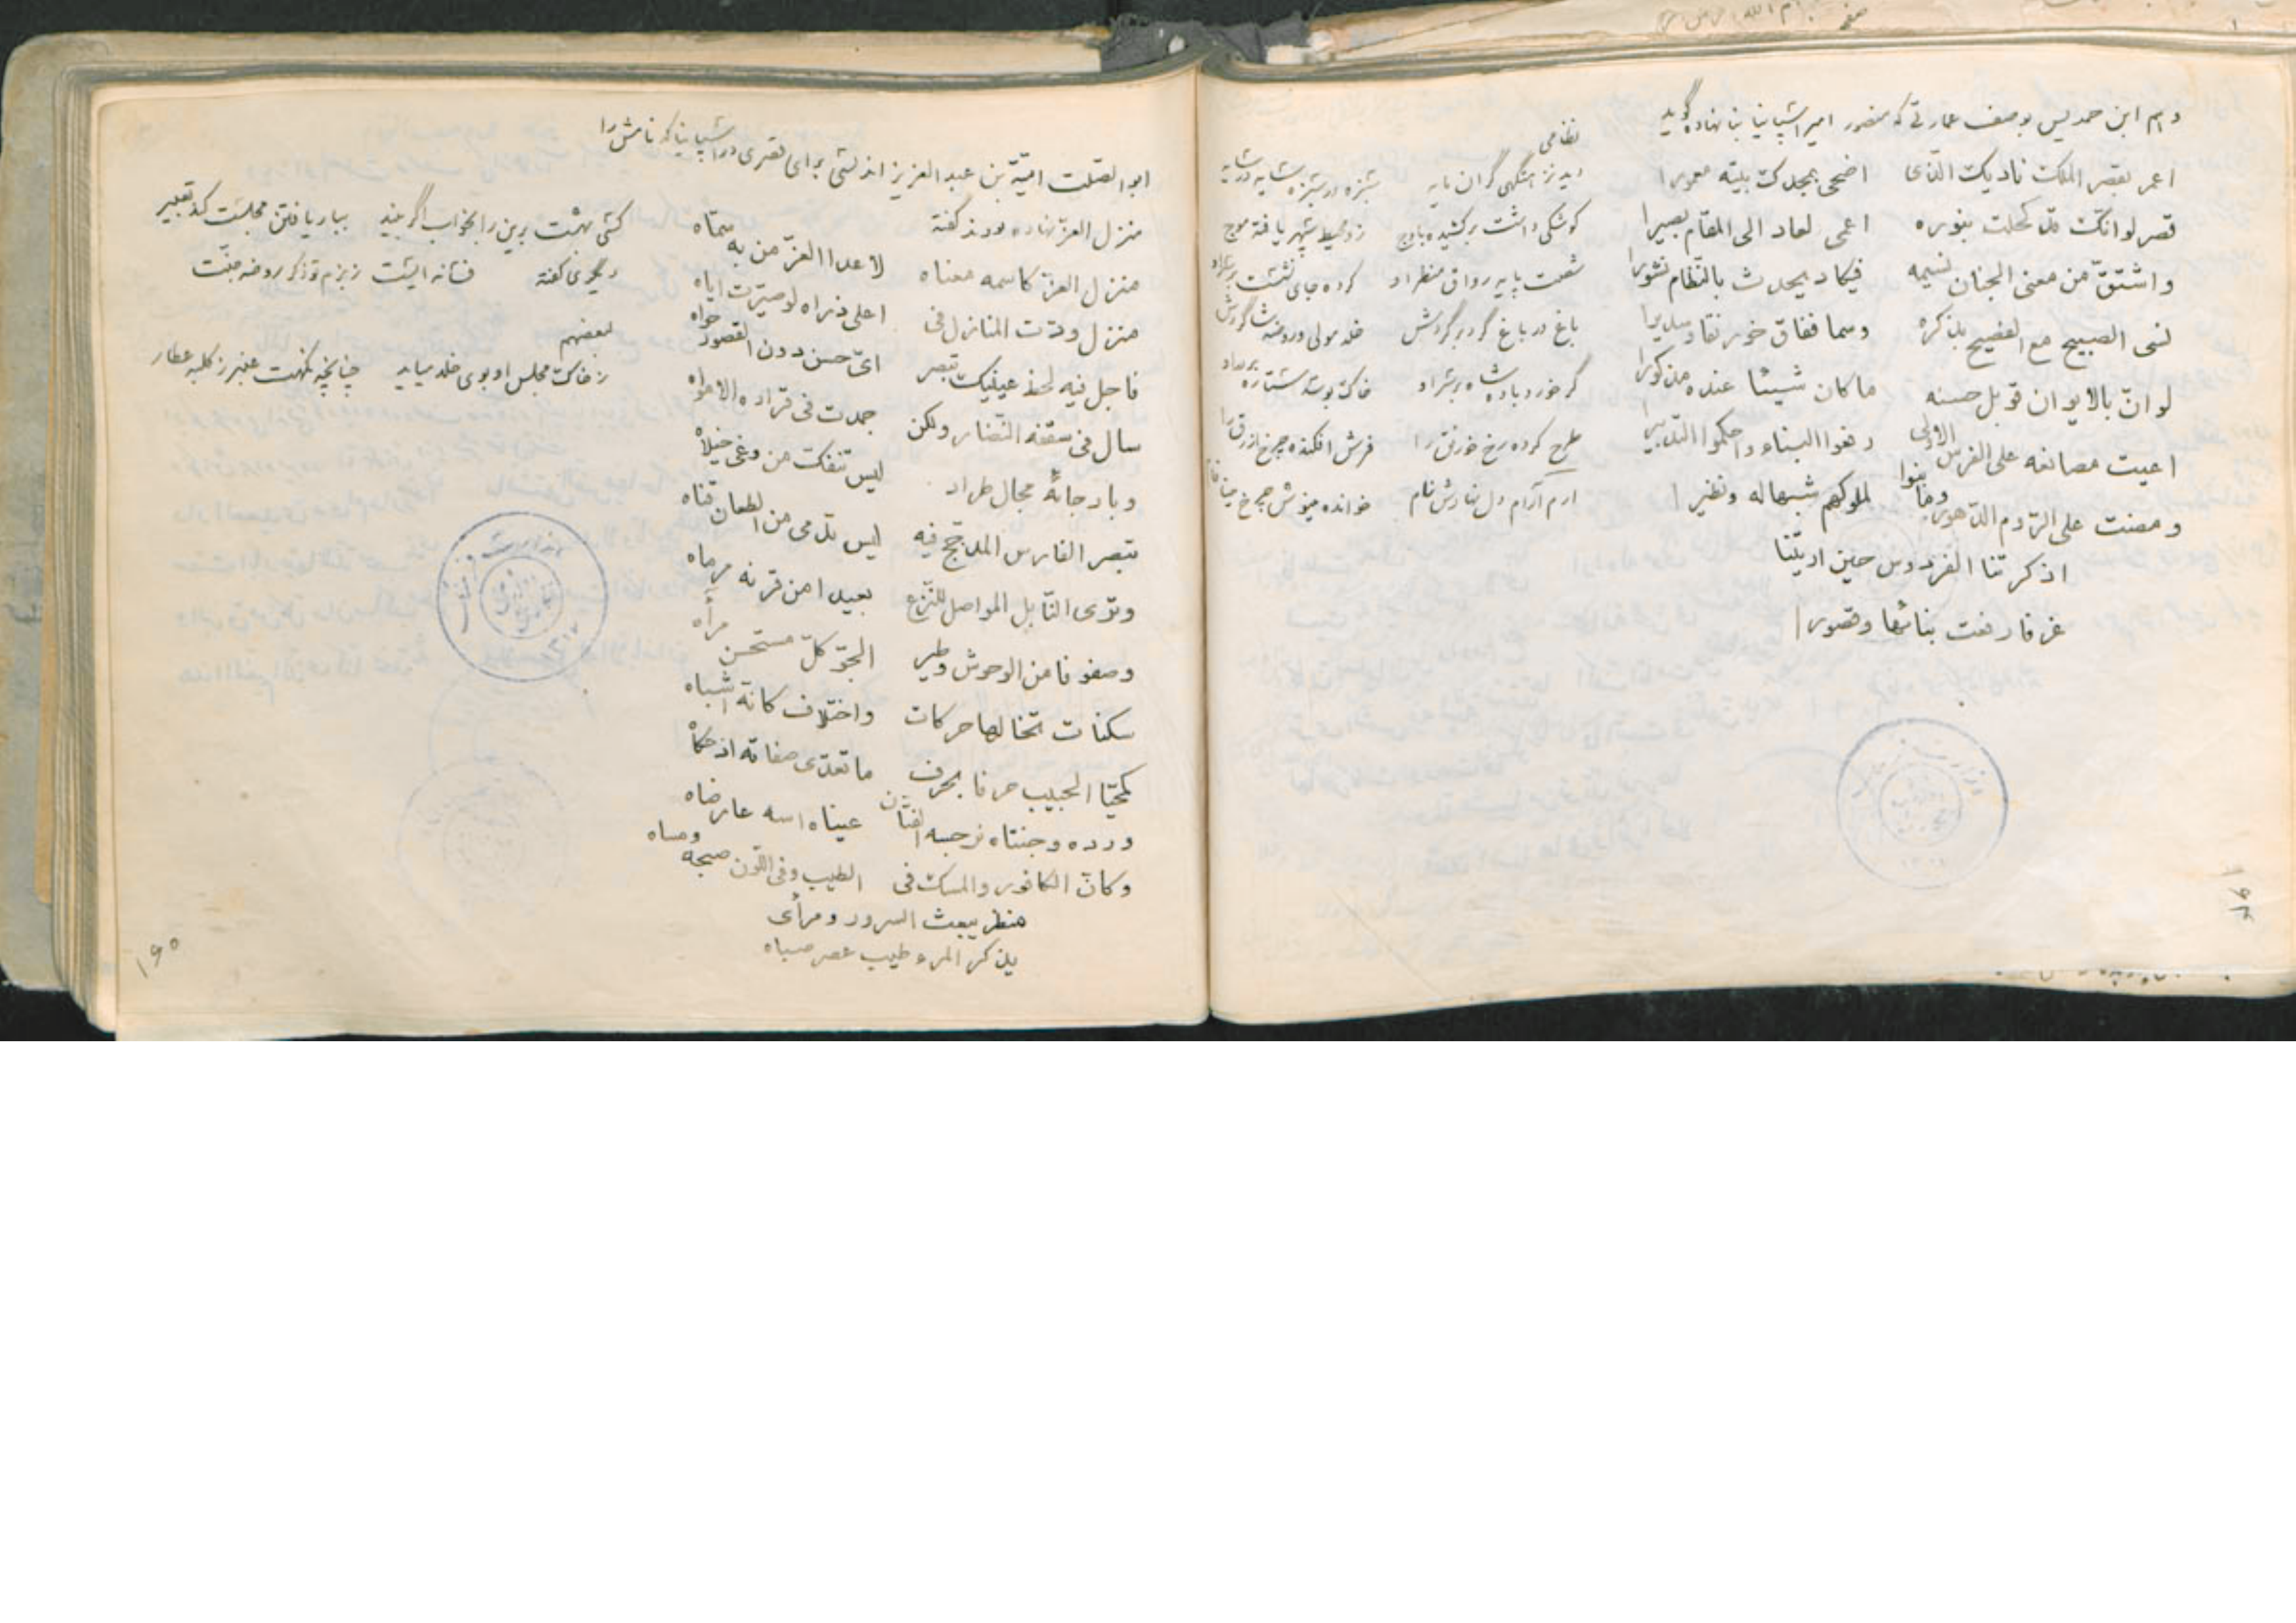 و هم ابن حمدیس بوصف عمارتی که منصور امیر اشپانیا بنا نهاده گوید
اعمر بقصر الملک نادیک الّذی اضحی بمجدک بیته معمورا
قصر لو انّک قد کحلت بنوره اعمی لعاد الی المقام بصیرا
و اشتقّ من معنی الجنان نسیمه فیکاد یحدث بالعظام نشورا
نسی الصبیح مع الفصیح بذکره وسما ففاق خورنقا و سدیرا
لو انّ بالایوان قوبل حسنه ما کان شیئا عنده مذکورا
اعیت مصانعه علی الفرس الاولی رفعوا البناء و احکموا التدبیرا
و مضت علی الرّوم الدّهور و ما بنوا لملوکهم شبها له و نظیرا
اذکرتنا الفردوس حین اریتنا
غرفا رفعت بنائها و قصورا
نظامی
دید نزهتگهی گران پایه سبزه در سبزه سایه در سایه
کوشکی داشت برکشیده باوج زو محیط سپهر یافته موج
شصت پایه رواق منظر او کرده جای نشست بر سر او
باغ در باغ گرد بر گردش خلد مولی و روضه شاگردش
گر خورد باده شاه بر در او خاک بوسد ستاره بر در او
طرح کرده رخ خورنق را فرش افکنده چرخ ازرق را
ارم آرام دل نهادش نام خوانده مینوش چرخ مینا فام
ابو الصّلت امیّة بن عبد العزیز اندلسی برای قصری در اشپانیا که نامش را
منزل العزّ نهاده بودند گفته
منزل العزّ کاسمه معناه لا عدا العزّ من به سمّاه
منزل ودّت المنازل فی اعلی ذراه لو صیّرت ایاه
فاجل فیه لحظ عینیک تبصر ایّ حسن دون القصور حواه
سال فی سقفه النّضار ولکن جمدت فی قراره الامواه
و بارجائه مجال طراد لیس تنفک من وغی خیلاه
تبصر الفارس المدجّج فیه لیس تدمی من الطعان قناه
و تری النّابل المواصل للنّزع بعیدا من قرنه مرماه
وصفوفا من الوحوش و طیر الجوّ کلّ مستحسن مرآه
سکنات تخالها حرکات و اختلاف کانّه اشباه
کمحیّا الحبیب حرفا بحرف ما تعدّی صفاته اذ حکاه
ورده وجنتاه نرجسه الفتّان عیناه اسه عارضاه
و کانّ الکافور و المسک فی الطیب و فی اللّون صبحه و مساه
منظر یبعث السرور و مرأی
یذکر المرء طیب عصر صباه
کسی بهشت برین را بخواب اگر بیند بباریافتن مجلست کند تعبیر
دیگری گفته
فسانه ایست ز بزم تو ذکر روضه جنّت
لبعضهم
ز خاک مجلس او بوی خلد میاید چنانچه نکهت عنبر ز کلبه عطار
۱۹۰